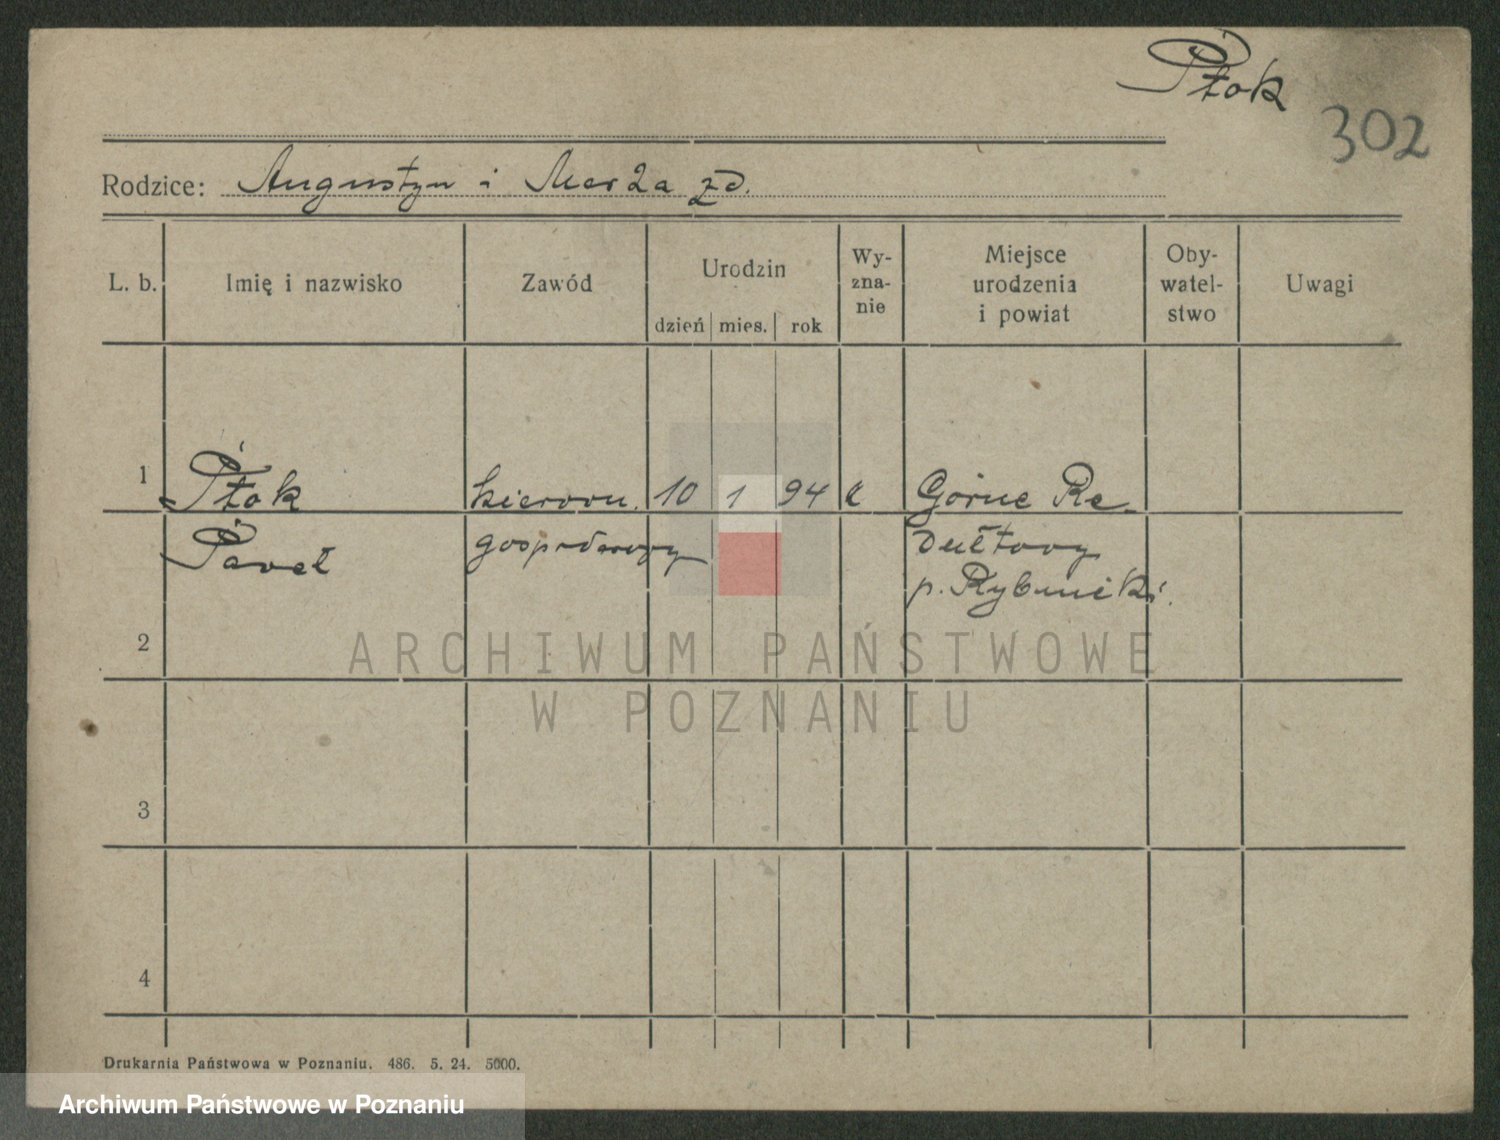 Ptok
302
Rodzice: Augustyn i
L. b. Imię i nazwisko Zawód Urodzin Wy- Miejsce Oby- Uwagi
zna- urodzenia watel-
nie i powiat stwo
dzień mies. rok
1 Ptok kierown. 10 1 94 k Górne Re-
Paweł gospodarczy dułtowy
p. Rybnicki
2
3
4
ARCHIWUM PAŃSTWOWE
W POZNANIU
Drukarnia Państwowa w Poznaniu. 486. 5. 24. 5000.
Archiwum Państwowe w Poznaniu